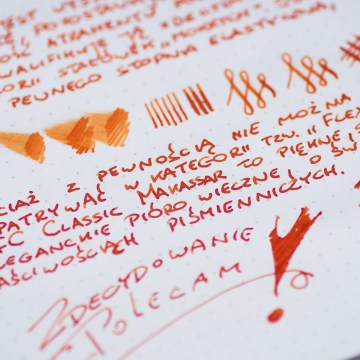 JEST
ŚĆ ATRAMENTU
WALIFIKUJE JĄ
ORII STALÓWEK "MOKRYCH".
PEWNEGO STOPNIA ELASTYCZNA,
CIAŻ Z PEWNOŚCIĄ NIE MOŻNA
PATRYWAĆ W KATEGORII TZW. "FLEX
TC CLASSIC MAKASSAR TO PIĘKNE I
LEGANCKIE PIÓRO WIECZNE O ŚW
AŚCIWOŚCIACH PIŚMIENNICZYCH.
ZDECYDOWANIE
POLECAM!